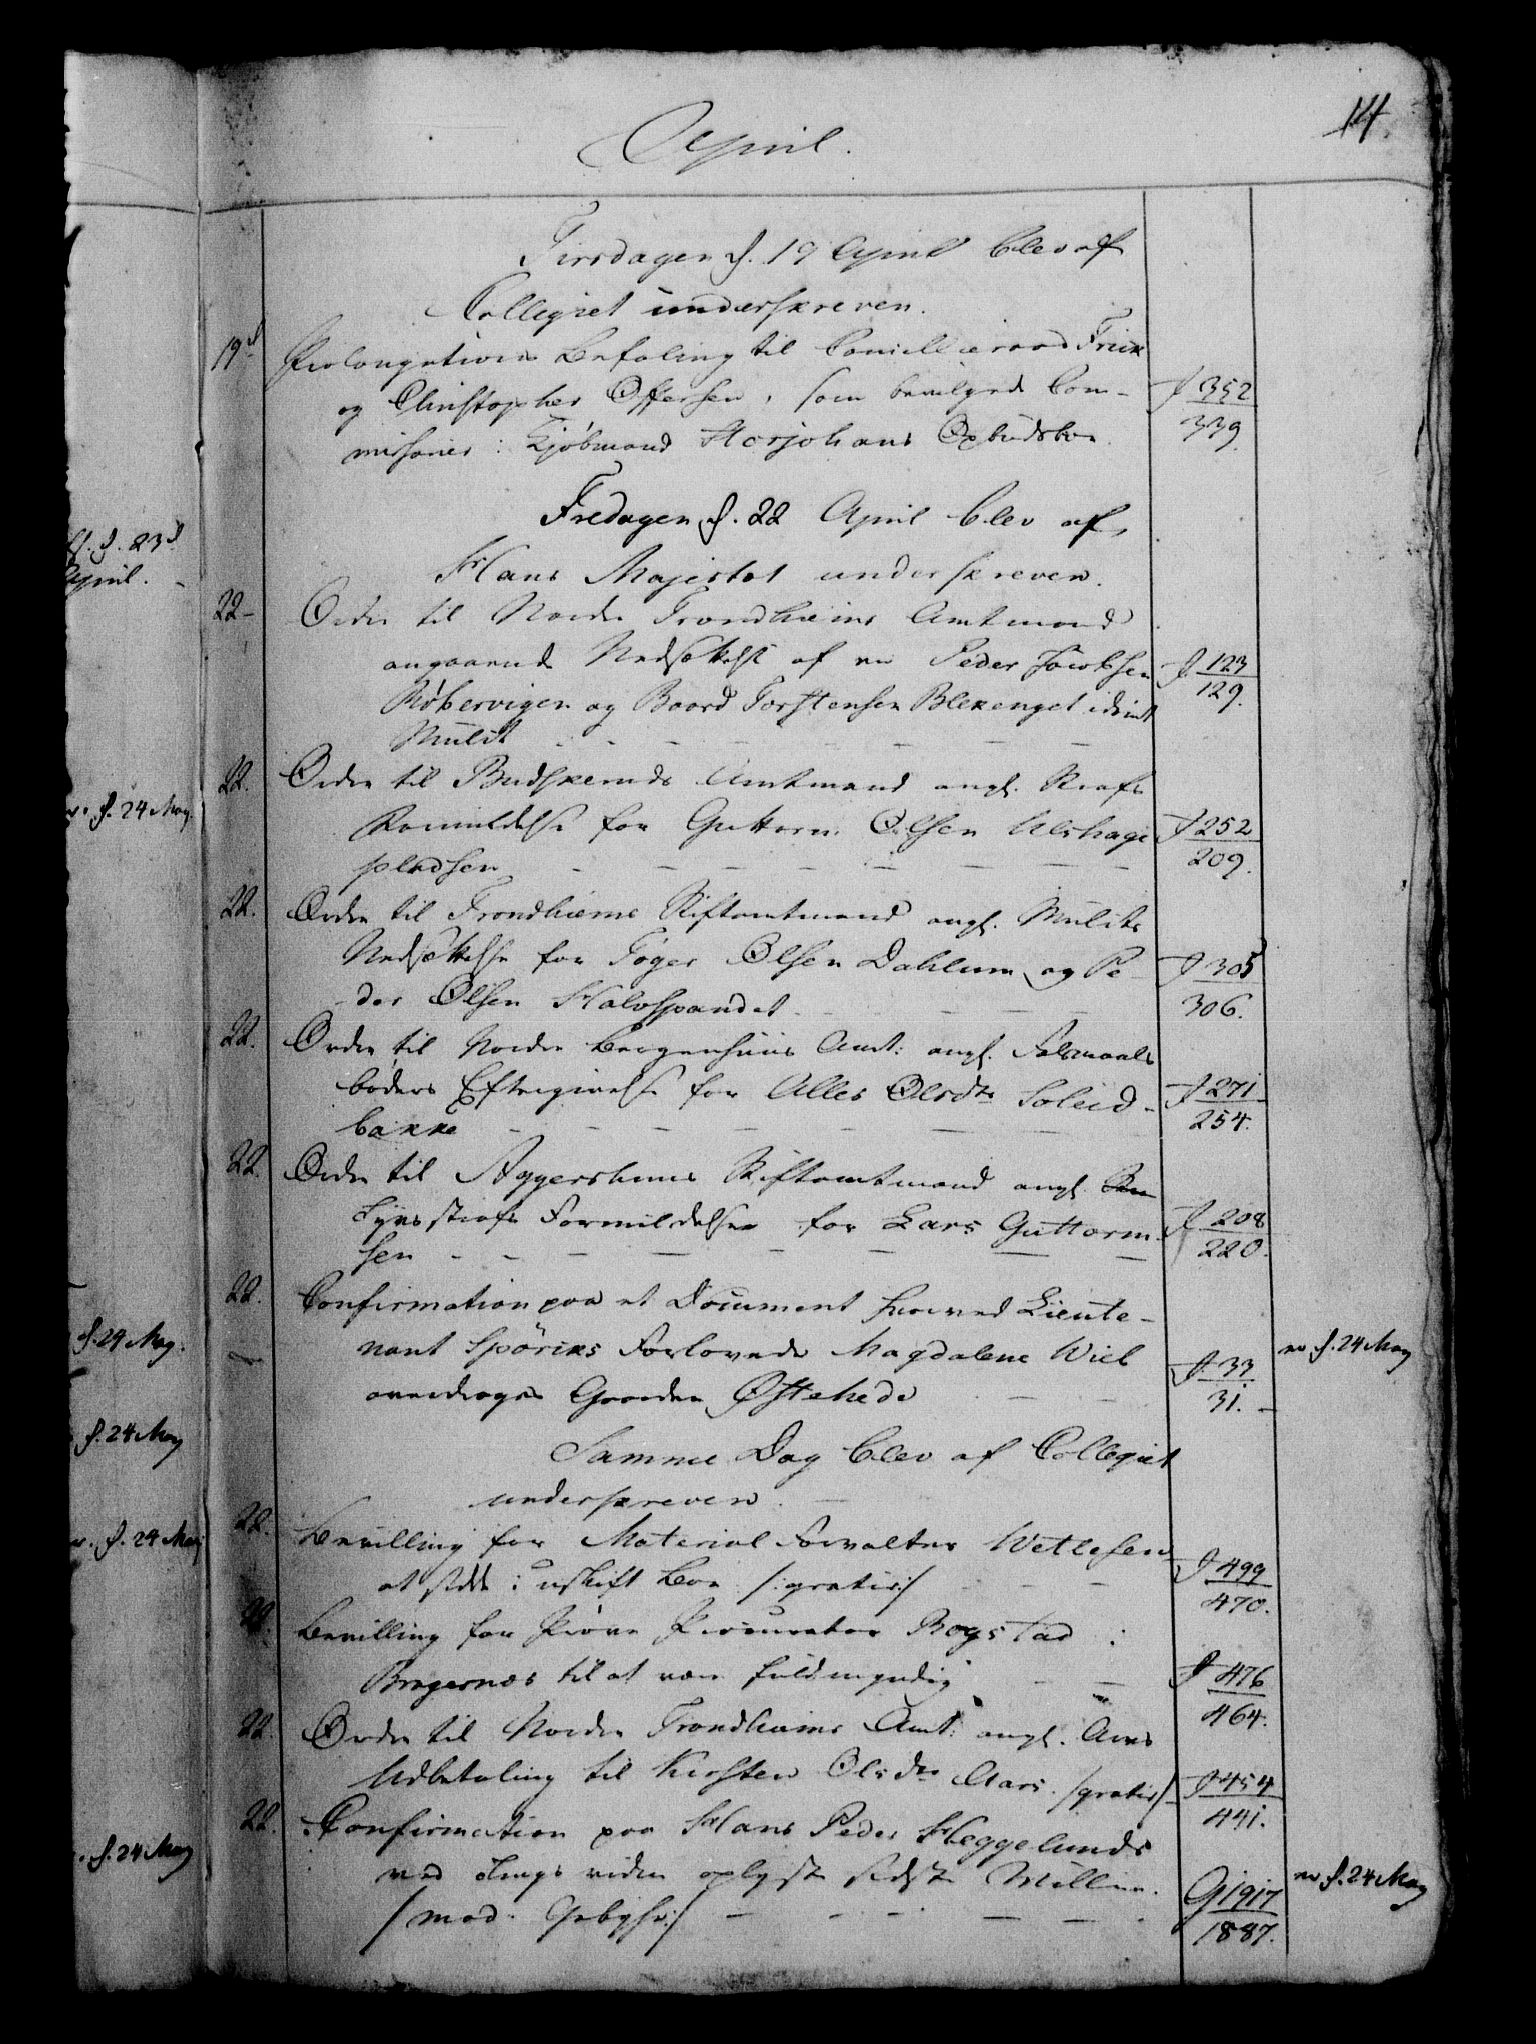 14
April.
Tirsdagen d. 19 April blev af
Collegiet underskreven.
19d Prolongations Befaling til Cancellieraad Friis
og Christopher Effersen, som bevilgede Com-
missarier i Kjøbmand Horjohans Opbudsboe.
J 352
339.
Fredagen d. 22 April blev af
Hans Majestet underskreven.
22 - Ordre til Nordre Trondhiems Amtmand
angaaende Nedsættelse af en Peder Jacobsen
Røbervigen og Baard Torstensen Blekenget idømt
Mulct
J 123
129.
22. Ordre til Budskeruds Amtmand angl. Strafs
Formildelse for Guttorm Olsen Ulshage
pladsen
J 252
209.
22. Ordre til Trondhiems Stiftamtmand angl. Mulcts
Nedsættelse for Toger Olsen Dahlum og Pe-
der Olsen Halvspandet
J 305
306.
22. Ordre til Nordre Bergenhuus Amt: angl. Leiermaals
bøders Eftergivelse for Alles Olsdtr Soleid-
bakke
J 271
254.
22. Ordre til Aggershuus Stiftamtmand angl.
Tyvsstrafs Formildelse for Lars Guttorm-
sen
J 208
220.
22. Confirmation paa et Document hvorved Lieute-
nant Spørcks Forlovede Magdalene Wiel
overdrages Gaarden Østehede
J. 33
31.
no d. 24 May
Samme Dag blev af Collegiet
underskreven.
22. Bevilling for Material Forvalter Wetlesen
at sidde i uskift Boe /:gratis:/
J 499
470.
22. Bevilling for Prøve Procurator Bogstad i
Bragernæs til at være fuldmyndig
J 476
464.
22. Ordre til Nordre Trondhiems Amt: angl. Arvs
Udbetaling til Kirsten Olsdtr Aars. /gratis/
J 454
441.
22. Confirmation paa Hans Peder Heggelunds
ved Tings vidne oplyste sidste Villie.
/mod. Gebyhr:/
G 1917
1887.
no d. 24 May
d. 23d
April.
d. 24 May.
d. 24 May.
d. 24 May
d. 24 May
d. 24 May